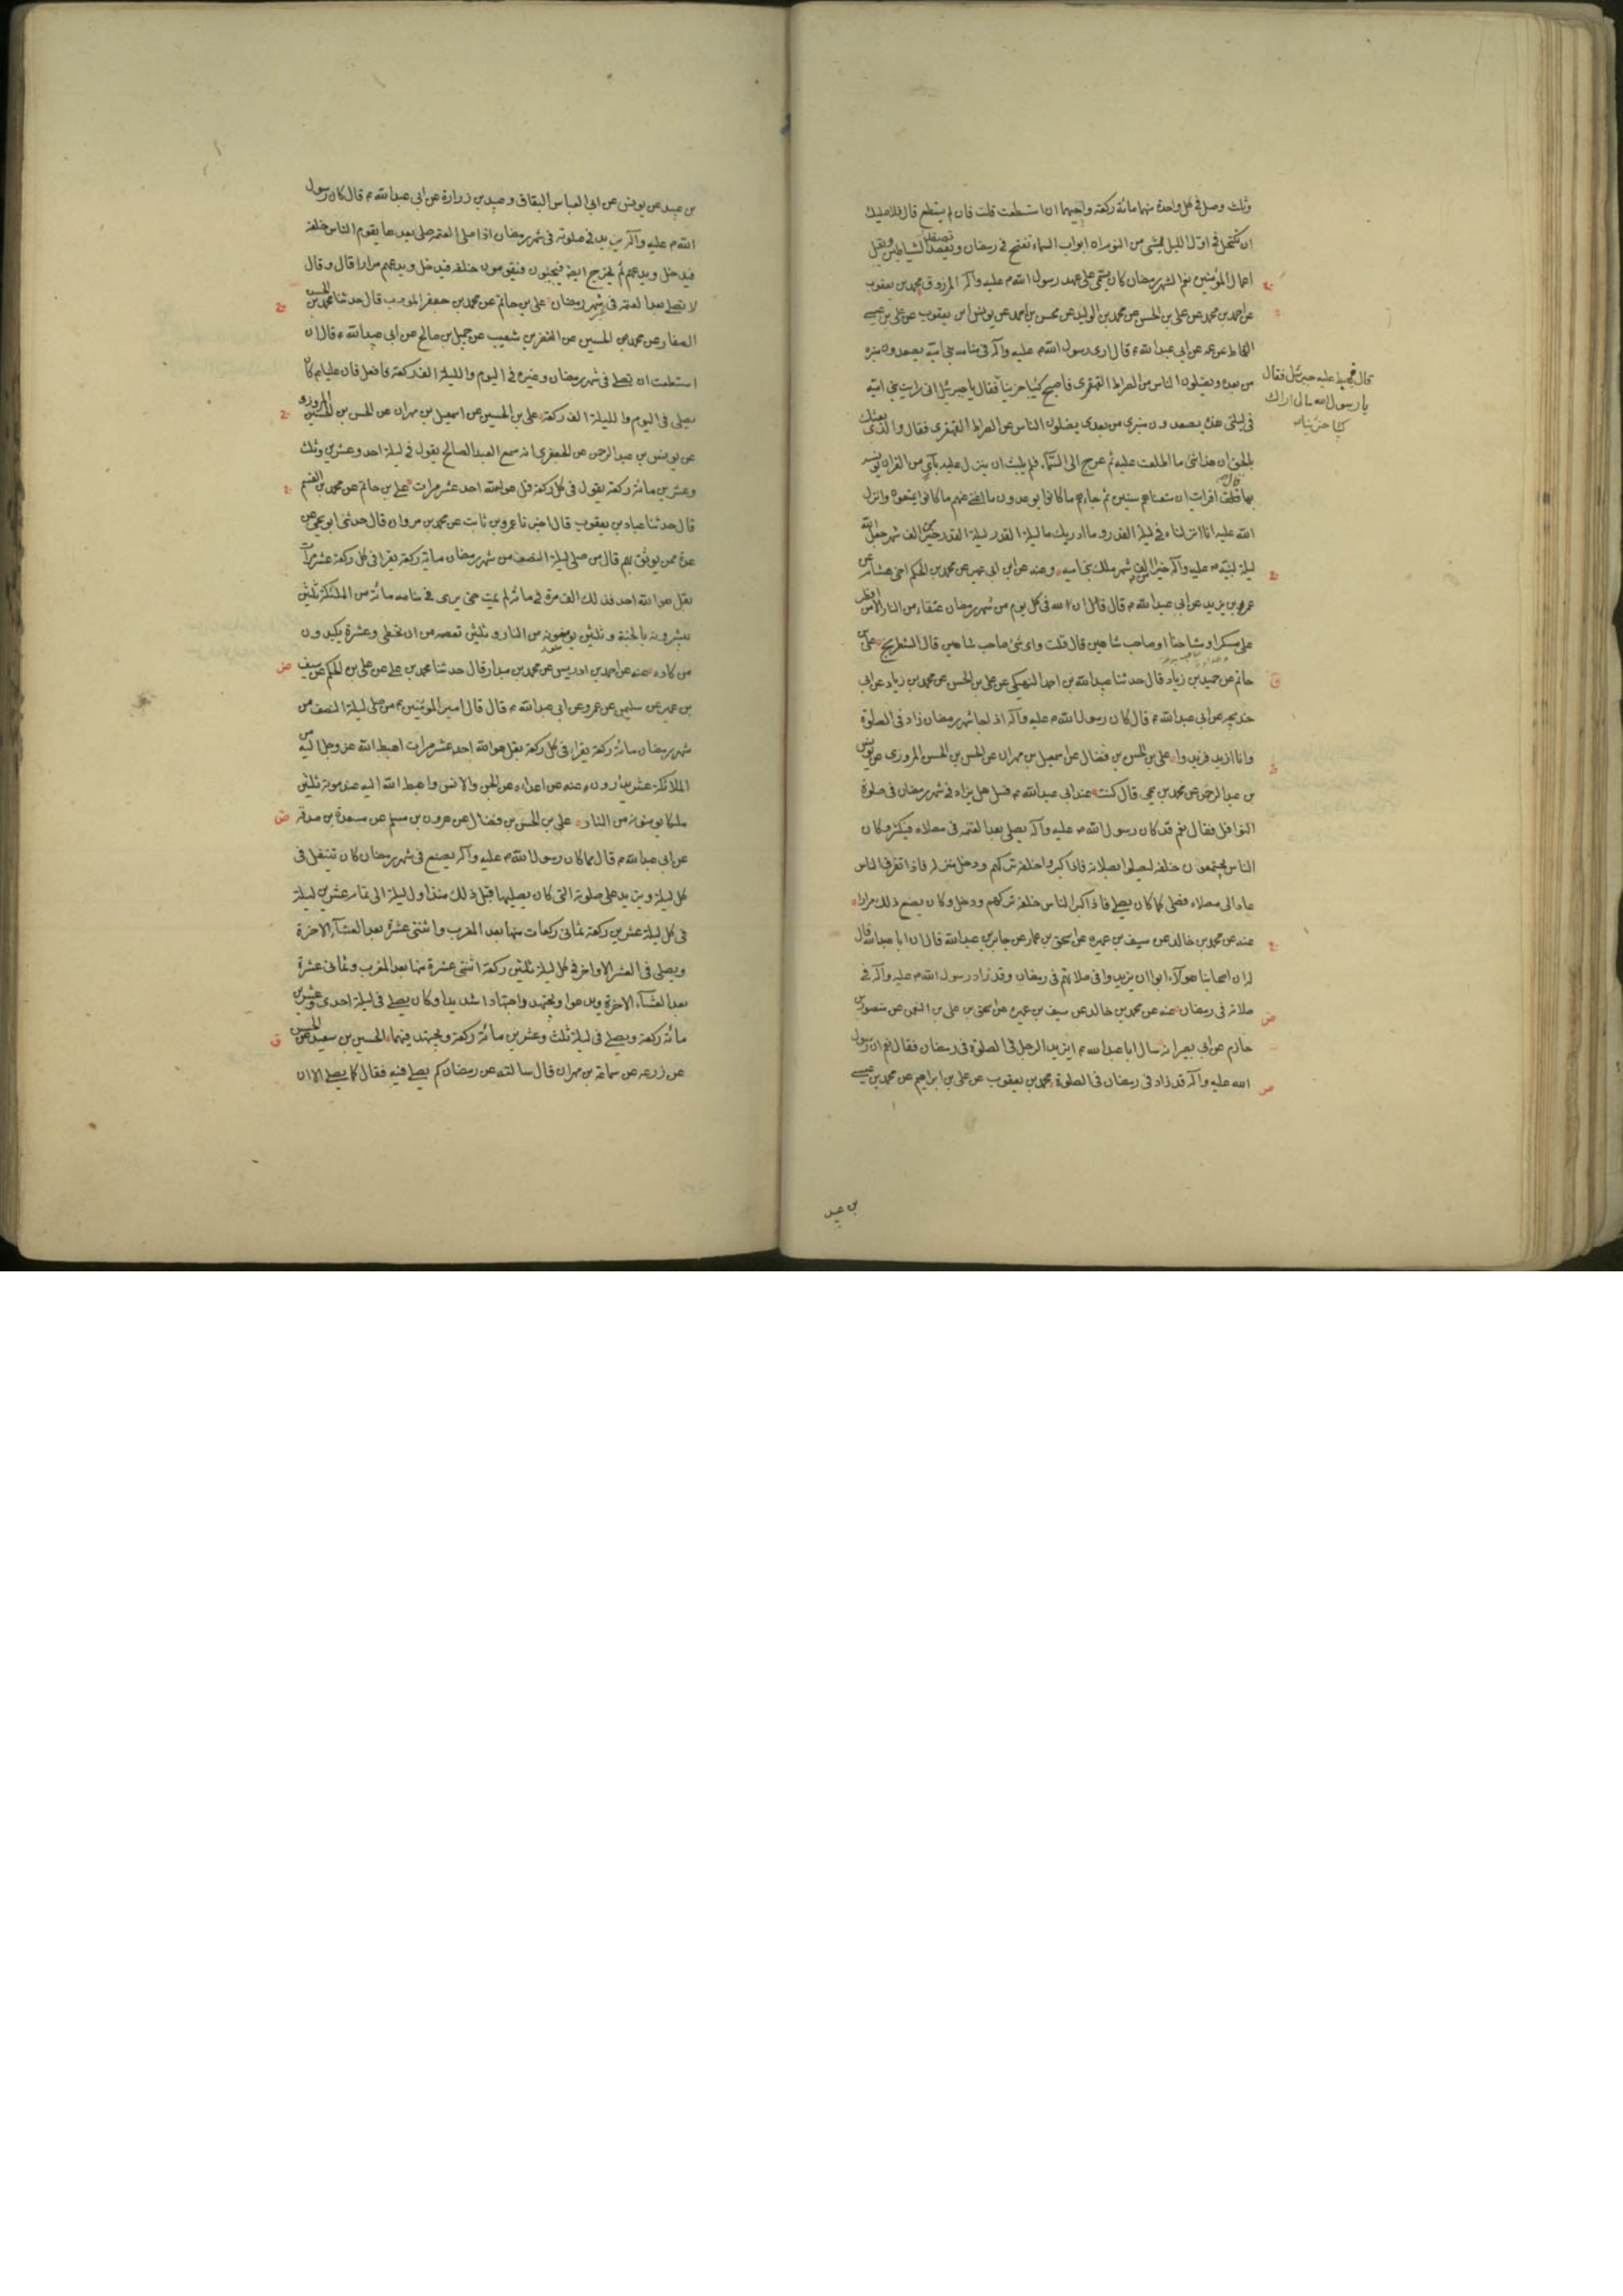 وثلث وصل في كل واحدة منهما مائة ركعة واحيهما ان استطعت قلت فان لم يستطع قال فلا عليك
ان تكتحل في اول الليل بشيء من النوم ان ابواب السماء تفتح في رمضان وتصفد الشياطين ويقبل
اعمال المؤمنين نعم الشهر رمضان كان يسمى على عهد رسول الله ص عليه وآله المرزوق محمد بن يعقوب
عن احمد بن محمد عن علي بن الحسن عن محمد بن الوليد عن محسن بن احمد عن يونس بن يعقوب عن علي بن عيسى
القماط عن عمه عن ابي عبد الله ع قال ارى رسول الله ص عليه وآله في منامه بني امية يصعدون منبره
من بعده ويضلون الناس من الصراط القهقرى فاصبح كئيبا حزينا فقال يا جبرئيل انى رايت بني امية
قال فهبط عليه جبرئيل فقال
يا رسول الله مالى اراك
كئيبا حزينا
في ليلتى هذه يصعدون منبري من بعدى يضلون الناس عن الصراط القهقرى فقال والذى بعثك
بالحق ان هذا شئ ما اطلعت عليه ثم عرج الى السماء فلم يلبث ان ينزل عليه بآى من القران يونسه
بها قال افرايت ان متعناهم سنين ثم جاءهم ما كانوا يوعدون ما اغنى عنهم ما كانوا يمتعون وانزل
الله عليه انا انزلناه في ليلة القدر وما ادريك ما ليلة القدر ليلة القدر خير من الف شهر جعل الله
ليلة لنبيه ص عليه وآله خيرا من الف شهر ملك بني اميه وعنه عن ابن ابي عمير عن محمد بن الحكم اخى هشام عن
عمر بن يزيد عن ابي عبد الله ع قال قال ان لله فى كل يوم من شهر رمضان عتقاء من النار الا من افطر
على مسكر او مشاحنا او صاحب شاهين قال قلت واى شئ صاحب شاهين قال الشطرنج على بن
حاتم عن حميد بن زياد قال حدثنا عبد الله بن احمد النهيكى عن على بن الحسن عن محمد بن زياد عن ابي
خديجه عن ابى عبد الله ع قال كان رسول الله ص عليه وآله اذا جا شهر رمضان زاد فى الصلوة
وانا ازيد فزيدوا على بن الحسن بن فضال عن اسمعيل بن مهران عن الحسن بن الحسن المروزى عن يونس
بن عبد الرحمن عن محمد بن يحيى قال كنت عند ابى عبد الله ع فسئل هل يزاد فى شهر رمضان فى صلوة
النوافل فقال نعم قد كان رسول الله ص عليه وآله يصلى بعد العتمه فى مصلاه فيكثر وكان
الناس يجتمعون خلفه ليصلوا بصلاته فاذا كبروا خلفه تركهم ودخل منزله فاذا تفرق الناس
عاد الى مصلاه فصلى كما كان يصلى فاذا كثر الناس خلفه تركهم ودخل وكان يصنع ذلك مرارا
عنه عن محمد بن خالد عن سيف بن عميره عن اسحق بن عمار عن جابر بن عبد الله قال ان ابا عبد الله قال
له ان اصحابنا هولاء ابوا ان يزيدوا فى صلاتهم فى رمضان وقد زاد رسول الله ص عليه وآله فى
صلاته فى رمضان عنه عن محمد بن خالد عن سيف بن عميره عن اسحق بن على بن النعمن عن منصور بن
حازم عن ابى بصير انه سال ابا عبد الله ع ايزيد الرجل فى الصلوة فى رمضان فقال نعم ان رسول
الله عليه وآله قد زاد فى رمضان فى الصلوة محمد بن يعقوب عن على بن ابراهيم عن محمد بن عيسى
بن عبيد
بن عبيد عن يونس عن ابى العباس البقاق وعبيد بن زرارة عن ابى عبد الله ع قال كان رسول
الله ص عليه وآله يزيد فى صلوته فى شهر رمضان اذا صلى العتمه صلى بعدها يقوم الناس خلفه
فيدخل ويدعهم ثم يخرج ايضا فيجيئون فيقومون خلفه فيدخل ويدعهم مرارا قال وقال
لا تصلى بعد العتمه فى غير شهر رمضان على بن حاتم عن محمد بن جعفر المودب قال حدثنا محمد بن الحسن
الصفار عن محمد بن الحسين عن النضر بن شعيب عن جميل بن صالح عن ابى عبد الله ع قال ان
استطعت ان تصلى فى شهر رمضان وغيره فى اليوم والليلة الف ركعة فافعل فان عليا ع كان
يصلى فى اليوم والليلة الف ركعة على بن الحسين عن اسمعيل بن مهران عن الحسن بن الحسين المروزى
عن يونس بن عبد الرحمن عن الجعفرى انه سمع العبد الصالح يقول فى ليلة احد وعشرين وثلث
وعشرين مائة ركعة يقول فى كل ركعة قل هو الله احد عشر مرات على بن حاتم عن محمد بن القسم
قال حدثنا عباد بن يعقوب قال اخبرنا عمرو بن ثابت عن محمد بن مروان قال حدثنى ابو يحيى عن
عدة ممن يوثق بهم قال من صلى ليلة النصف من شهر رمضان مائة ركعة يقرا فى كل ركعة عشر مرات
بقل هو الله احد فذلك الف مرة فى مائة لم يمت حتى يرى فى منامه مائة من الملئكة ثلثين
يبشرونه بالجنة وثلثين يومنونه من النار وثلثين تعصمه من ان يخطى وعشرة يكيدون
من كاده عنه عن احمد بن ادريس عن محمد بن قال حدثنا محمد بن على عن على بن الحكم عن سيف
بن عميره عن سليمن عن عمرو عن ابى عبد الله ع قال قال امير المومنين ع من صلى ليلة النصف من
شهر رمضان مائة ركعة يقرا فى كل ركعة بقل هو الله احد عشر مرات اهبط الله عز وجل اليه من
الملائكة عشرة يدرؤن عنه من اعدائه من الجن والانس واهبط الله اليه عند موته ثلثين
ملكا يومنونه من النار على بن الحسن بن فضال عن هرون بن مسلم عن مسعدة بن صدقة
عن ابى عبد الله ع قال مما كان رسول الله ص عليه وآله يصنع فى شهر رمضان كان يتنفل فى
كل ليلة ويزيد على صلوته التى كان يصليها قبل ذلك منذ اول ليلة الى تمام عشرين ليلة
فى كل ليلة عشرين ركعة ثمانى ركعات منها بعد المغرب واثنتى عشرة بعد العشاء الاخرة
ويصلى فى العشر الاواخر فى كل ليلة ثلثين ركعة اثنتى عشرة منها بعد المغرب وثمانى عشرة
بعد العشاء الاخرة ويدعوا ويجتهد واجتهادا شديدا وكان يصلى فى ليلة احدى وعشرين
مائة ركعة ويصلى فى ليلة ثلث وعشرين مائة ركعة ويجتهد فيهما الحسين بن سعيد عن الحسن
عن زرعه عن سماعة بن مهران قال سالته عن رمضان كم يصلى فيه فقال كما يصلى الا ان